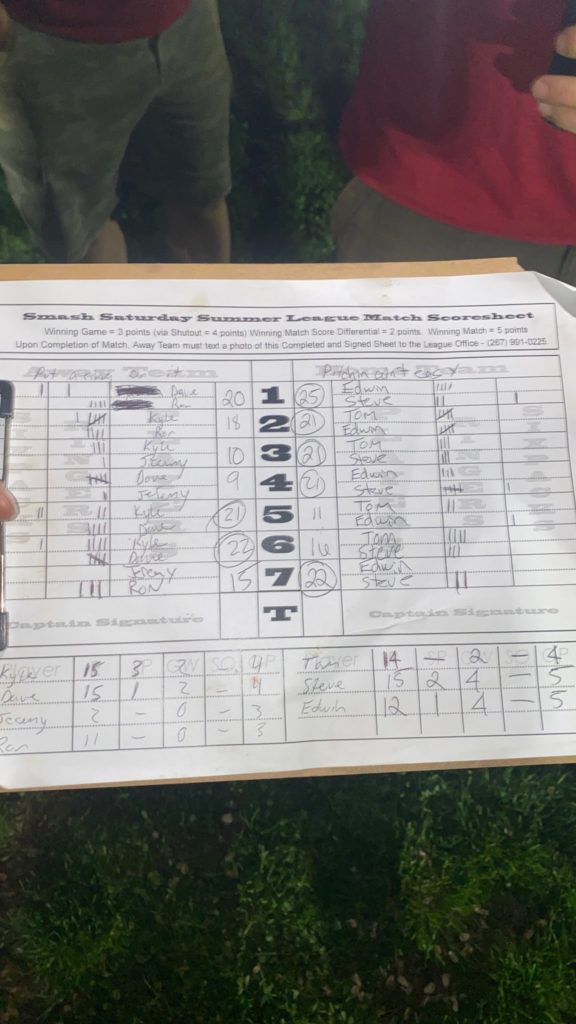 Smash Saturday Summer League Match Scoresheet
Winning Game = 3 points (via Shutout = 4 points) Winning Match Score Differential = 2 points. Winning Match = 5 points
Upon Completion of Match, Away Team must text a photo of this Completed and Signed Sheet to the League Office - (267) 991-0225
Dave 20 1 25 Edwin
Ron Steve
Kyle 18 2 21 Tom
Ron Edwin
Kyle 10 3 21 Tom
Jeremy Steve
Dave 9 4 21 Edwin
Jeremy Steve
Kyle 21 5 11 Tom
Dave Edwin
Kyle 22 6 16 Tom
Dave Steve
Jeremy 15 7 22 Edwin
Ron Steve
T
Captain Signature Captain Signature
Kyle 15 3 2 - 4 Tom 14 - 2 - 4
Dave 15 1 2 - 4 Steve 15 2 4 - 5
Jeremy 2 - 0 - 3 Edwin 12 1 4 - 5
Ron 11 - 0 - 3